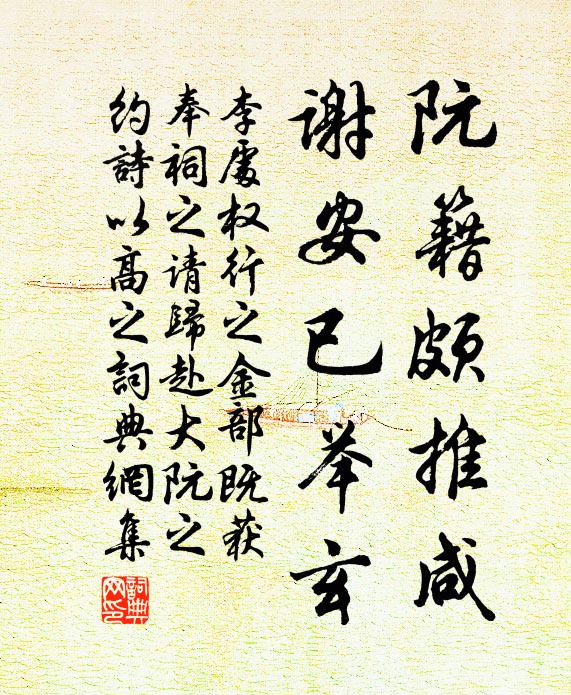 阮籍頗推咸
谢安已举玄
李處权行之金部既获
奉祠之请歸赴大阮之
约詩以高之詞典網集
詞典
网印